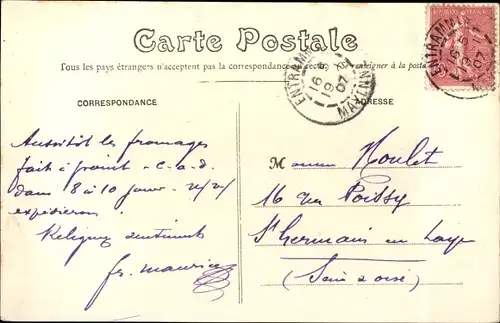 Carte Postale
Tous les pays étrangers n'acceptent pas la correspondance se renseigner à la poste
ENTRAMMES
16 5
19 07
MAYENNE
ENTRAMMES
16 5
19 07
CORRESPONDANCE
ADRESSE
Aussitôt les fromages
fait à point - c. a. d.
dans 8 à 10 jours
expédierons
Religieux sentiments
fr. Maurice
Monsieur Houlet
16 rue Poissy
St Germain en Laye
(Seine & oise)